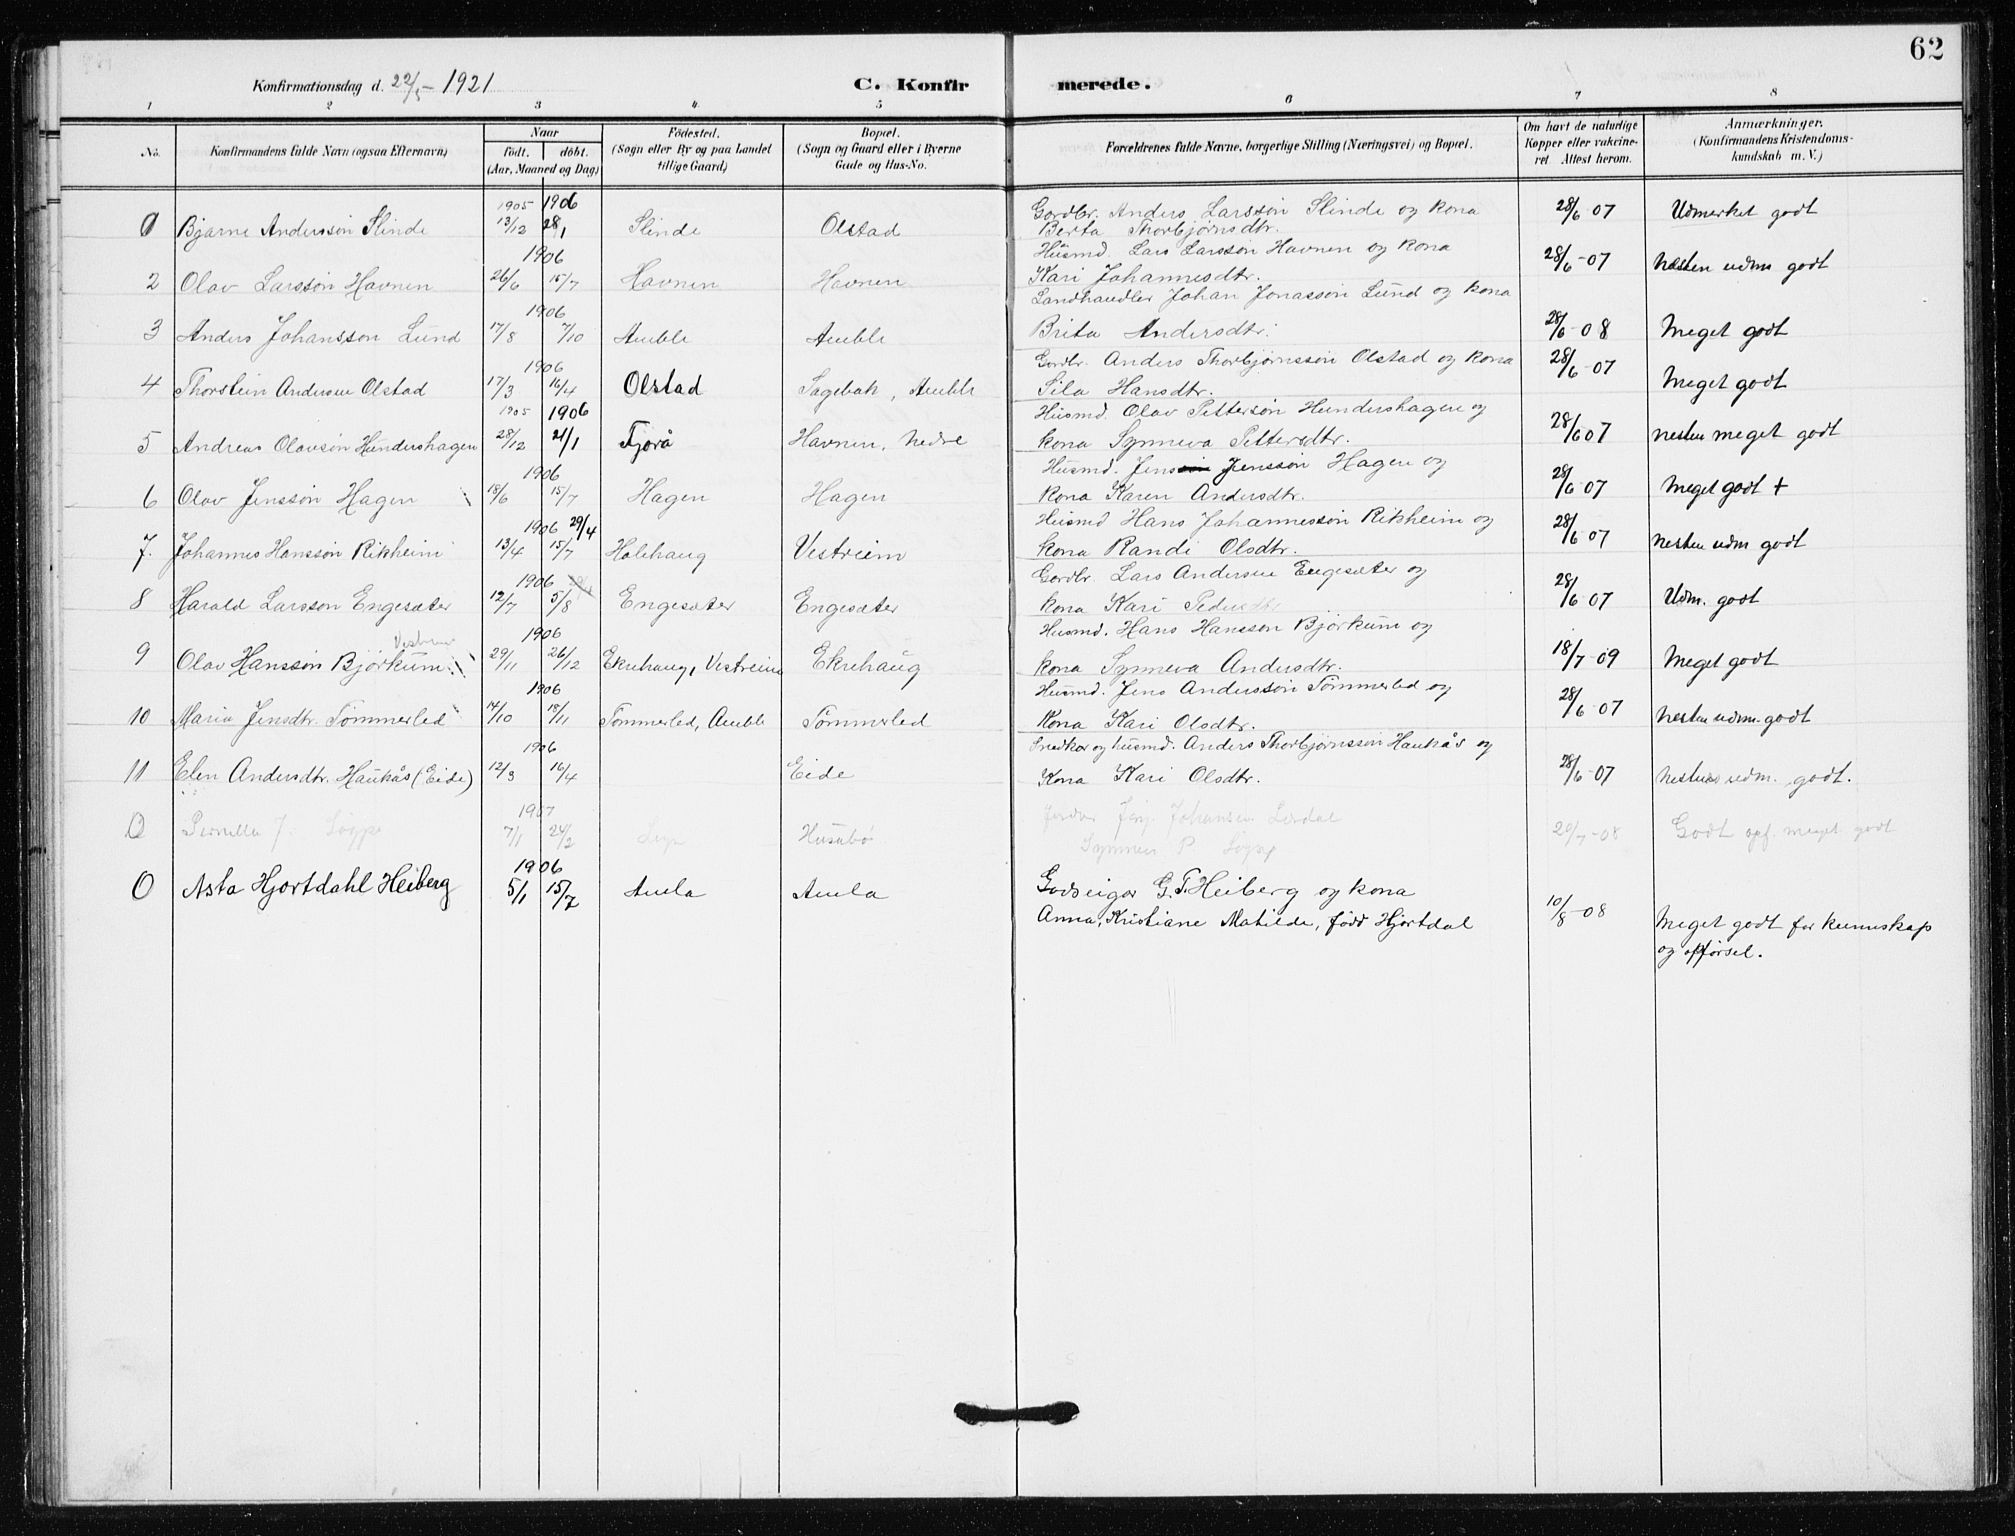 62
Konfirmationsdag d. 22/5 - 1921
C. Konfirmerede.
1 2 3 4 5 6 7 8
No. Konfirmandens fulde Navn (ogsaa Efternavn) Naar født. døbt. (Aar, Maaned og Dag) Fødested. (Sogn eller By og paa Landet tillige Gaard) Bopæl. (Sogn og Gaard eller i Byerne Gade og Hus-No. Forældrenes fulde Navne, borgerlige Stilling (Næringsvei) og Bopæl. Om havt de naturlige Kopper eller vakcineret Attest herom. Anmærkninger. (Konfirmandens Kristendomskundskab m. V.)
1905 1906 Gardbr. Anders Larssøn Slinde og kona
1 Bjarne Anderssøn Slinde 13/12 28/1 Slinde Olstad Berta Thorbjørnsdtr. 28/6 07 Udmerket godt
1906 Husmd. Lars Larssøn Havnen og kona
2 Olav Larssøn Havnen 26/6 15/7 Havnen Havnen Kari Johannesdtr. 28/6-07 Næsten udm godt
1906 Landhandler Johan Jonassøn Lund og kona
3 Anders Johansson Lund 17/8 7/10 Amble Amble Brita Andersdtr. 28/6-08 Meget godt
1906 Gardbr. Anders Thorbjørnssøn Olstad og kona
4 Thorstein Andersen Olstad 17/3 16/4 Olstad Sagebak, Amble Sila Hansdtr. 28/6-07 Meget godt
1905 1906 Husmd. Olav Pettersøn Hundershagen og
5 Andreas Olavsøn Hundershagen 28/12 21/1 Fjørå Havnen, Nedre kona Synneva Pettersdtr. 28/6 07 nesten meget godt
1906 Husmd. Jens Jenssøn Hagen og
6 Olav Jenssøn Hagen 18/6 15/7 Hagen Hagen kona Karen Andersdtr. 28/6 07 Meget godt +
1906 29/4 Husmd Hans Johannessøn Rikheim og
7. Johannes Hanssøn Rikheim 13/4 15/7 Holehaug Vestreim kona Randi Olsdtr. 28/6 07 nesten udm godt
1906 Gardbr. Lars Andersen Engesæter og
8 Harald Larsson Engesæter 12/7 5/8 Engesæter Engesæter kona Kari Pedersdtr 28/6 07 Udm. godt
Vestreim 1906 Husmd. Hans Hansson Bjørkum og
9 Olav Hanssøn Bjørkum 29/11 26/12 Ekrehaug, Vestreim Ekrehaug kona Synneva Andersdtr. 18/7-09 Meget godt
1906 Husmd. Jens Anderssøn Tømmerled og
10 Maria Jensdtr. Tømmerled 14/10 18/11 Tømmerled, Amble Tømmerled kona Kari Olsdtr. 28/6-07 Nesten udm. godt
1906 Snedker og husmd. Anders Thorbjørnssøn Haukås og
11 Elen Andersdtr. Haukås (Eide) 12/3 16/4 Eide kona Kari Olsdtr. 28/6-07 nesten udm. godt.
1907 Johansen Lerdal
0 Pernella J. 7/1 24/2 Husabø 29/7-08 Godt opf. meget godt
1906 Godseigar G. F. Heiberg og kona
0 Asta Hjortdahl Heiberg 5/1 15/7 Amla Amla Anna, Kristiane Matilde, født Hjortdal 10/8-08 Meget godt for kunnskap
og opførsel.